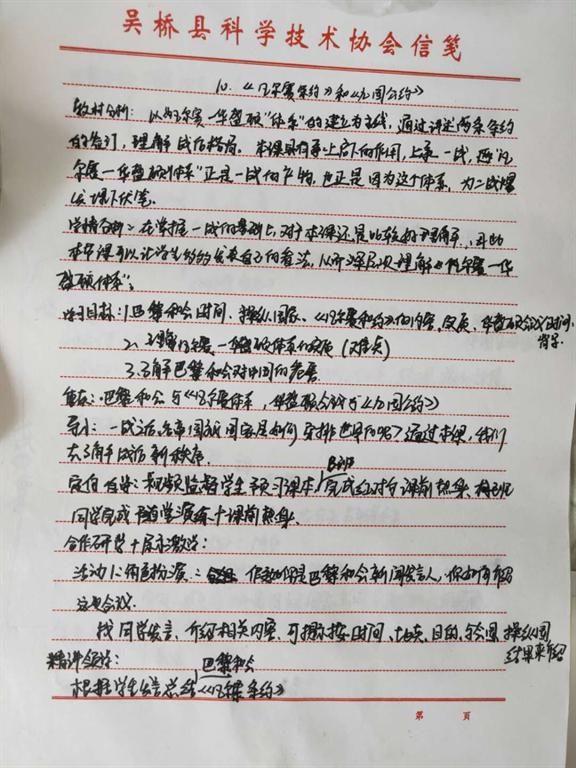 吴桥县科学技术协会信笺
10.《凡尔赛条约》和《九国公约》
教材分析：以凡尔赛—华盛顿"体系"的建立为主线，通过讲述两条条约
的签订，理解战后格局。本课具有承上启下的作用，上承一战，而"凡
尔赛—华盛顿体系"正是一战的产物，也正是因为这个体系，为二战爆
发埋下伏笔。
学情分析：在掌握一战的基础上，对于本课还是比较好理解，因此
本节课可以让学生 发表自己的看法，从而深层次理解"凡尔赛—华
盛顿体系"。
学习目标：1.巴黎和会时间、操纵国家、《凡尔赛和约》的内容、反应、华盛顿会议时间、
背景
2.理解凡尔赛—华盛顿体系的实质（难点）
3.了解巴黎和会对中国的危害
重点：巴黎和会与《凡尔赛体系，华盛顿会议与《九国公约》
导入：一战过后，帝国主义国家是如何安排世界的呢？通过本课，我们
去了解战后新秩序。
B班
定向自学：视频监督学生预习课本，完成 课前热身，
同学完成随堂演练+课前热身。
合作研学+展示激学：
活动1：角色扮演：假如你是巴黎和会新闻发言人，你如何介绍
这次会议。
找同学发言，介绍相关内容，可提示按时间、地点、目的、 操纵国
结果来介绍
精讲领学：
巴黎和会
根据学生发言总结《凡尔赛条约》
第 页